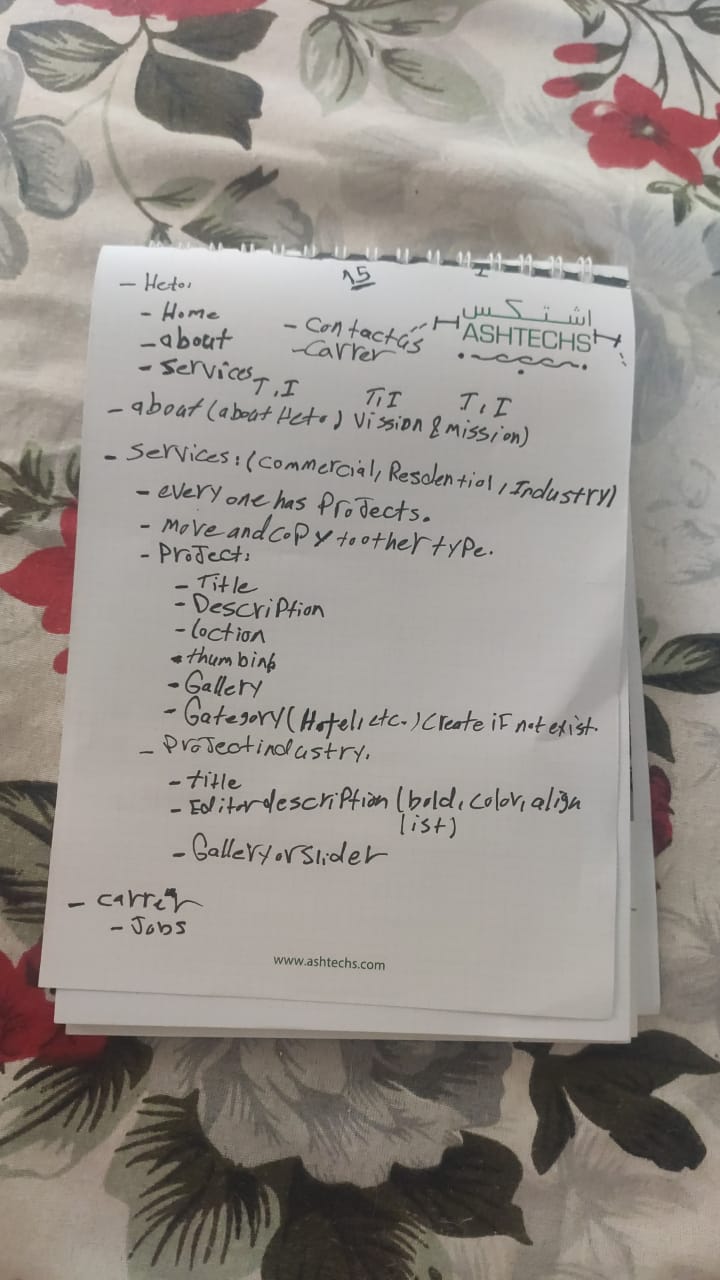 - Heto.
15
- Home
- about
- services
- Contactás
- Carrer
اشتكس
ASHTECHS
T, I T, I T, I
- about (about Heto) Vission & mission)
- Services: (Commercial, Resdential, Industry)
- every one has Projects.
- Move and copy to other type.
- Project:
- Title
- Description
- loction
- Gallery
- Gategory (Hotel, etc.) Create if not exist.
- Project industry.
- title
- Editor description (bold, color, align
list)
- Gallery or Slider
- Carrer
- Jobs
www.ashtechs.com